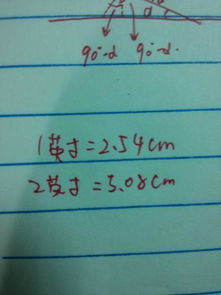 α
90-α 90-α
1英寸=2.54cm
2英寸=5.08cm